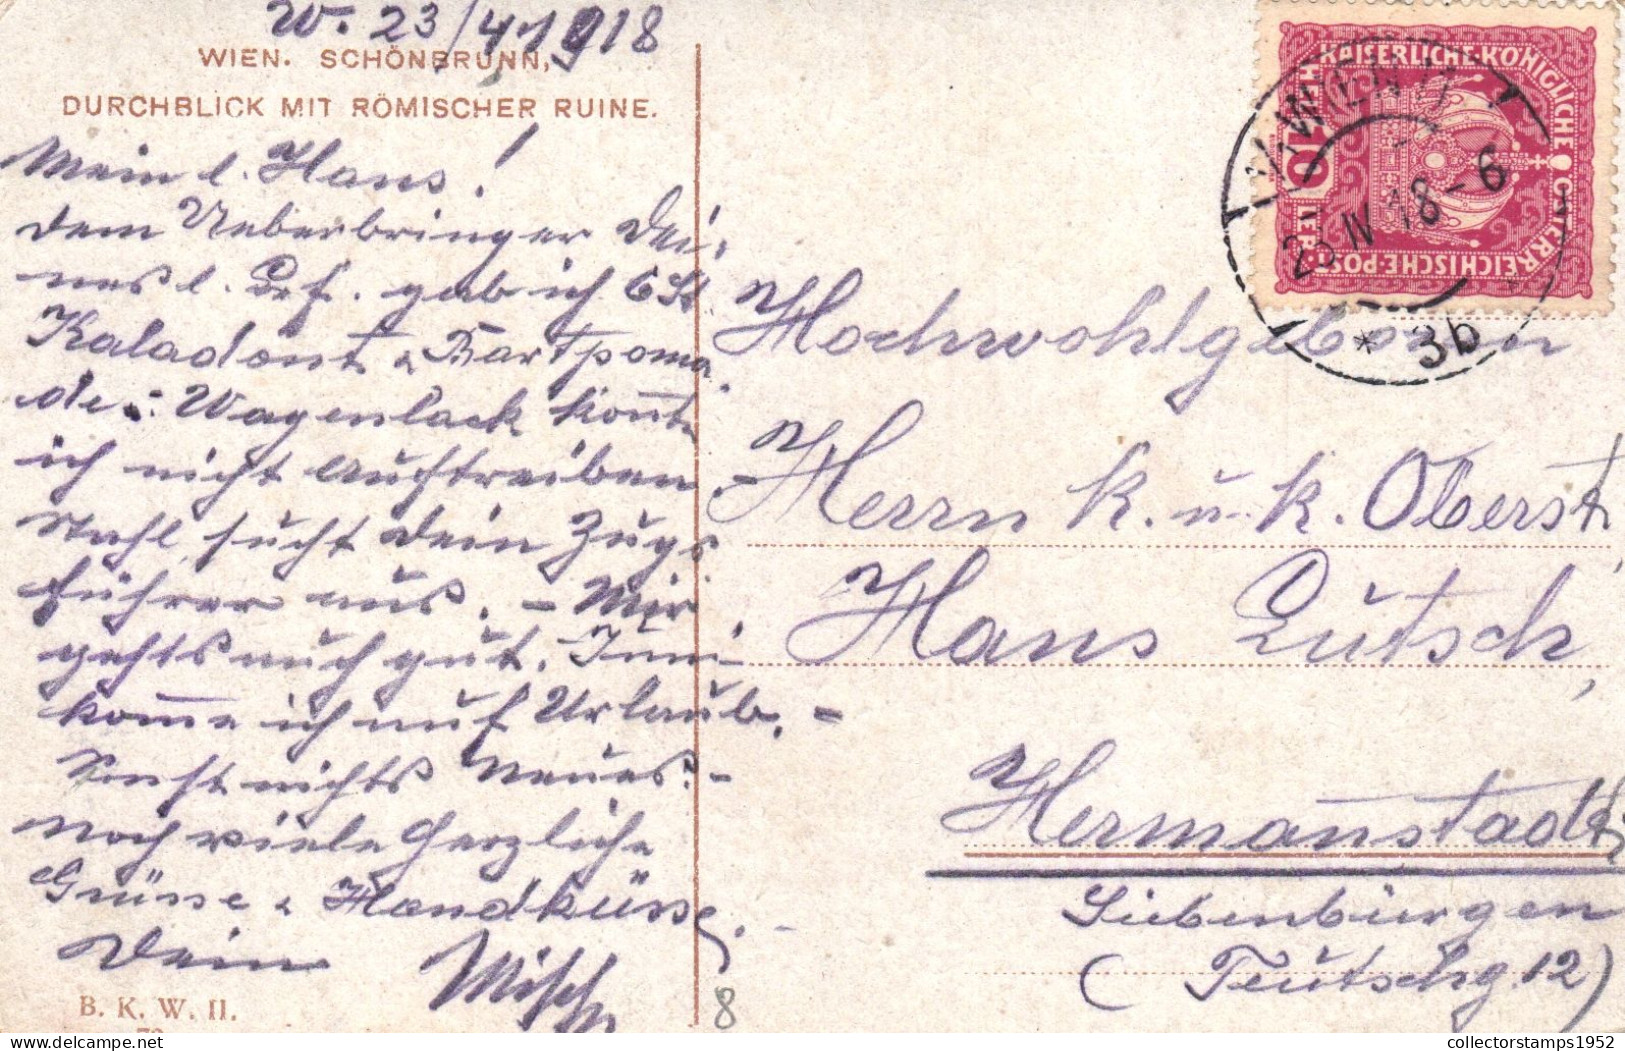 W. 23/4 1918
WIEN. SCHÖNBRUNN,
DURCHBLICK MIT RÖMISCHER RUINE.
Mein l. Hans!
Dem Ueberbringer Dei-
nes l. Brf. gab ich 6 St
Kaladont & Bartpoma
de.: Wagenlack konnte
ich nicht auftreiben. -
Stahl sucht Dein Zugs
führer aus. - Mir
gehts auch gut. Juni
komme ich auf Urlaub. -
Sonst nichts Neues. -
Noch viele herzliche
Grüsse & Handküsse. -
Dein Misch
B. K. W. II.
KAISERLICHE·KÖNIGLICHE ÖSTERREICHISCHE·POST
HELLER 10
WIEN
23 IV 18 - 6
* 3b
Hochwohlgeboren
Herrn k. u. k. Oberst,
Hans Lutsch,
Hermannstadt,
Siebenbürgen
(Teutschg. 12)
8
www.collectorstamps1952